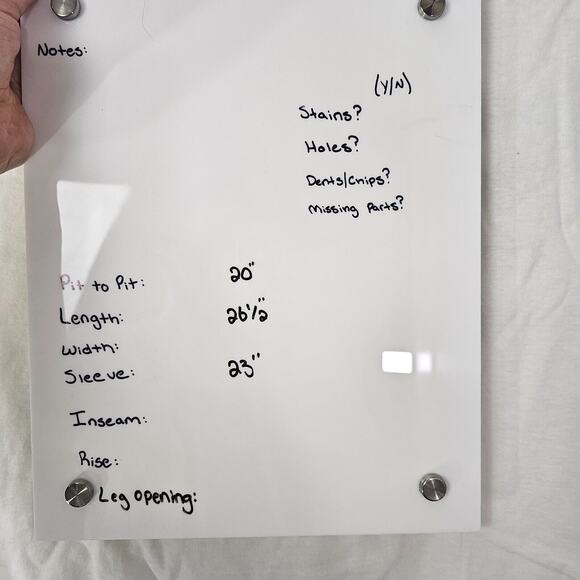 Notes:
(Y/N)
Stains?
Holes?
Dents/Chips?
Missing Parts?
Pit to Pit: 20"
Length: 26 1/2"
Width:
Sleeve: 23"
Inseam:
Rise:
Leg opening: